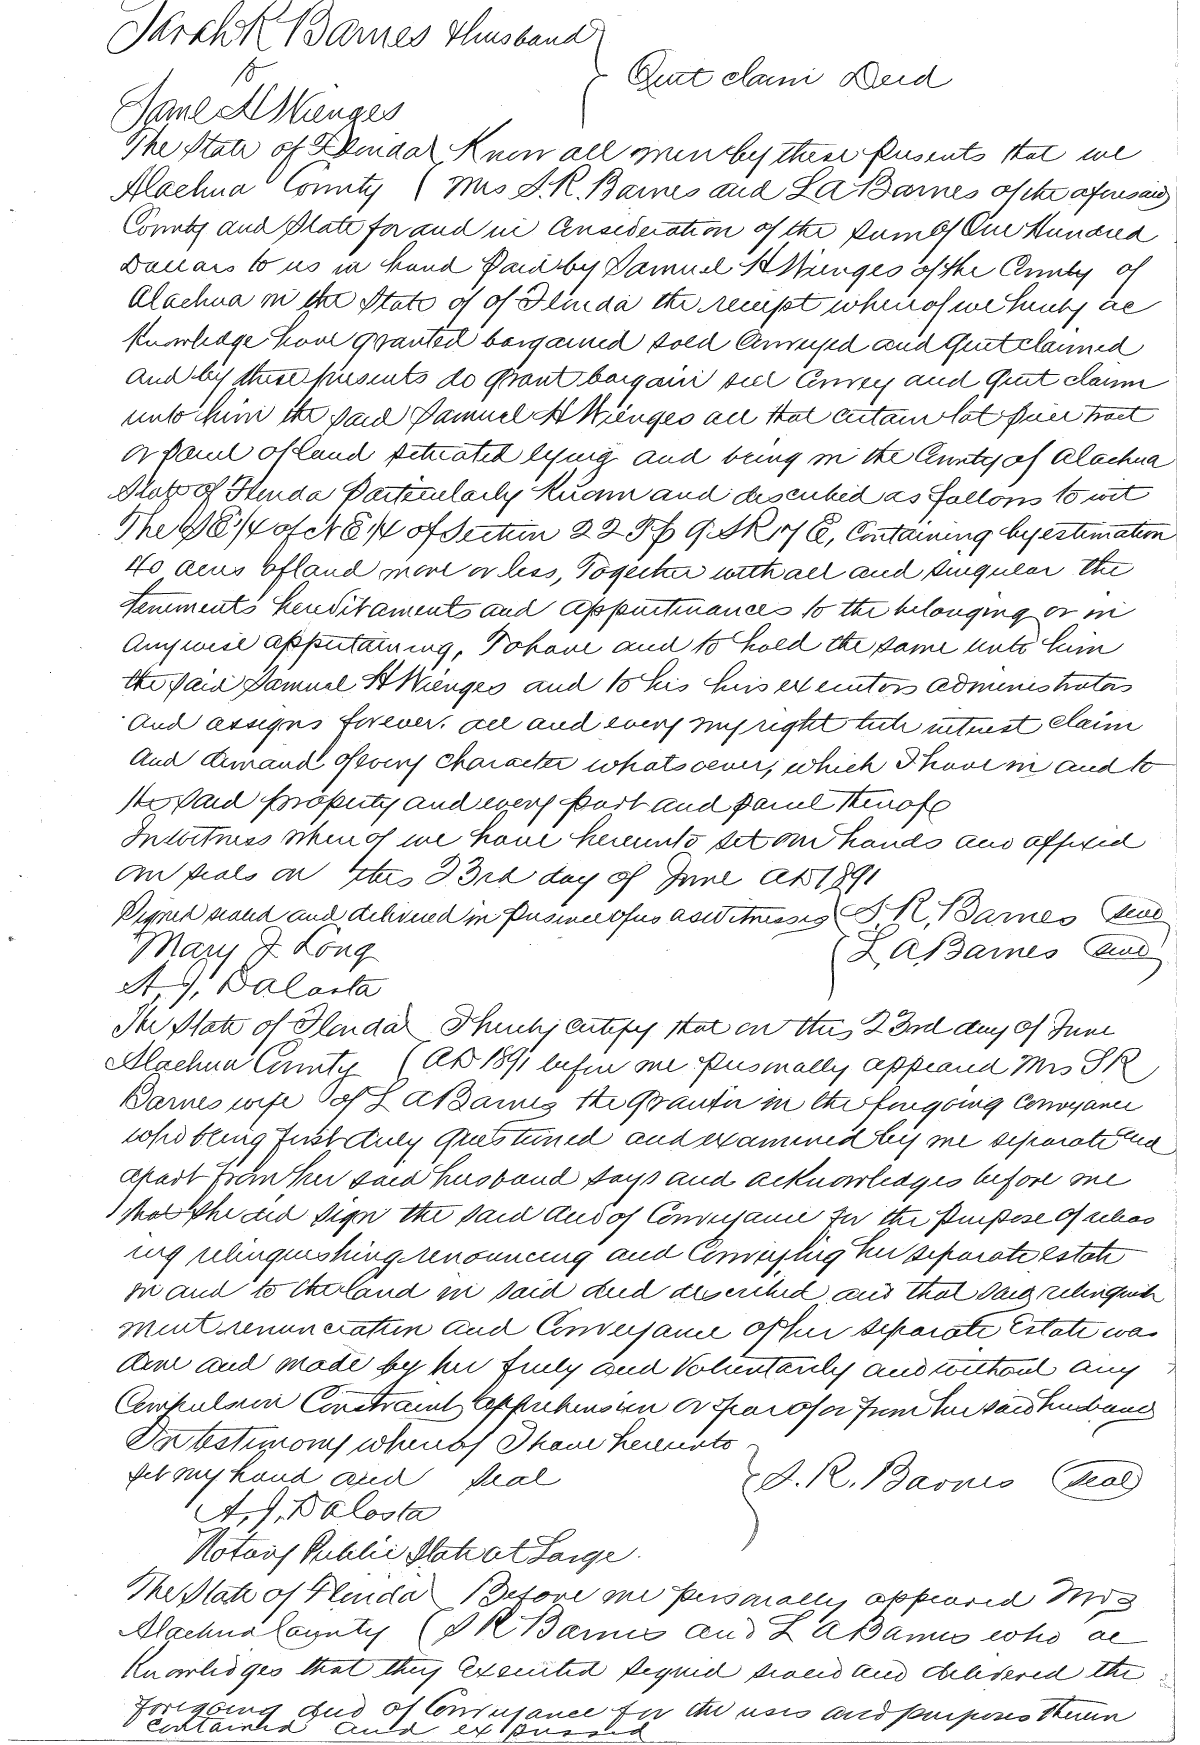 Sarah R Barnes & husband
to
Quit claim Deed
Jane H Wienges
The State of Florida Know all men by these presents that we
Alachua County Mrs S. R. Barnes and L A Barnes of the aforesaid
County and State for and in consideration of the sum of One Hundred
Dollars to us in hand paid by Samuel H Wienges of the County of
Alachua in the State of of Florida the receipt whereof we hereby ac
knowledge have granted bargained sold conveyed and quit claimed
and by these presents do grant bargain sell convey and quit claim
unto him the said Samuel H Wienges all that certain lot piece tract
or parcel of land situated lying and being in the County of Alachua
State of Florida particularly known and described as follows to wit
The SE 1/4 of NE 1/4 of Section 22 Tp 9. S R 17 E, containing by estimation
40 acres of land more or less, Together with all and singular the
tenements hereditaments and appurtenances to the belonging or in
anywise appertaining, To have and to hold the same unto him
the said Samuel H Wienges and to his heirs executors administrators
and assigns forever. all and every my right title interest claim
and demand of every character whatsoever, which I have in and to
the said property and every part and parcel thereof
In witness whereof we have hereunto set our hands and affixed
our seals on this 23rd day of June AD 1891
Signed sealed and delivered in presence of us as witnesses S. R. Barnes Seal
Mary J Long L. A. Barnes Seal
A. J. DaCosta
The State of Florida I hereby certify that on this 23rd day of June
Alachua County AD 1891 before me personally appeared Mrs S R
Barnes wife of L A Barnes the grantor in the foregoing conveyance
who being first duly questioned and examined by me separate and
apart from her said husband says and acknowledges before me
that she did sign the said deed of conveyance for the purpose of releas
ing relinquishing renouncing and conveying her separate estate
in and to the land in said deed described and that said relinquish
ment renunciation and conveyance of her separate Estate was
done and made by her freely and voluntarily and without any
compulsion constraint apprehension or fear of or from her said husband
In testimony whereof I have hereunto
set my hand and seal S. R. Barnes Seal
A. J. DaCosta
Notary Public State at Large.
The State of Florida Before me personally appeared Mrs
Alachua County S R Barnes and L A Barnes who ac
knowledges that they executed signed sealed and delivered the
foregoing deed of conveyance for the uses and purposes therein
contained and expressed